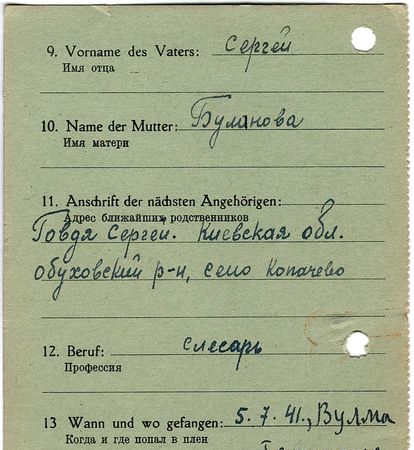 9. Vorname des Vaters: Сергей
Имя отца
10. Name der Mutter: Буланова
Имя матери
11. Anschrift der nächsten Angehörigen:
Адрес ближайших родственников
Говдя Сергей. Киевская обл.
обуховский р-н, село Копачево
12. Beruf: слесарь
Профессия
13 Wann und wo gefangen: 5.7.41., Вулма
Когда и где попал в плен